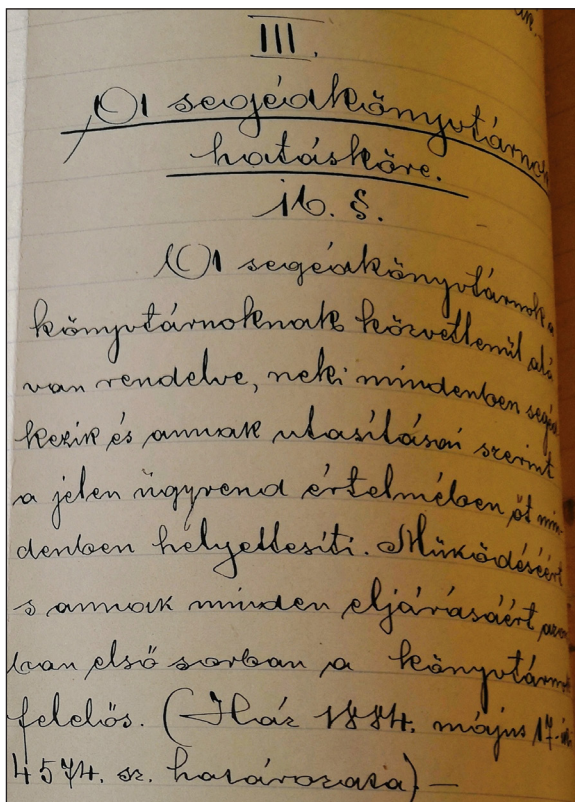 III.
A segédkönyvtárnok
hatásköre.
16. §.
A segédkönyvtárnok a
könyvtárnoknak közvetlenül alá
van rendelve, neki mindenben segéd
kezik és annak utasításai szerint
a jelen ügyrend értelmében őt min-
denben helyettesíti. Működéséért
s annak minden eljárásáért azon
ban első sorban a könyvtárnok
felelős. (Ház 1884. május 17-én
4574. sz. határozata). —